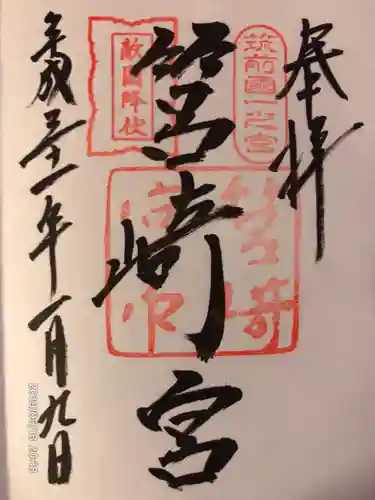 奉拝
筑前國一之宮
敵國降伏
筥崎宮
筥崎宮印
平成三十一年一月九日